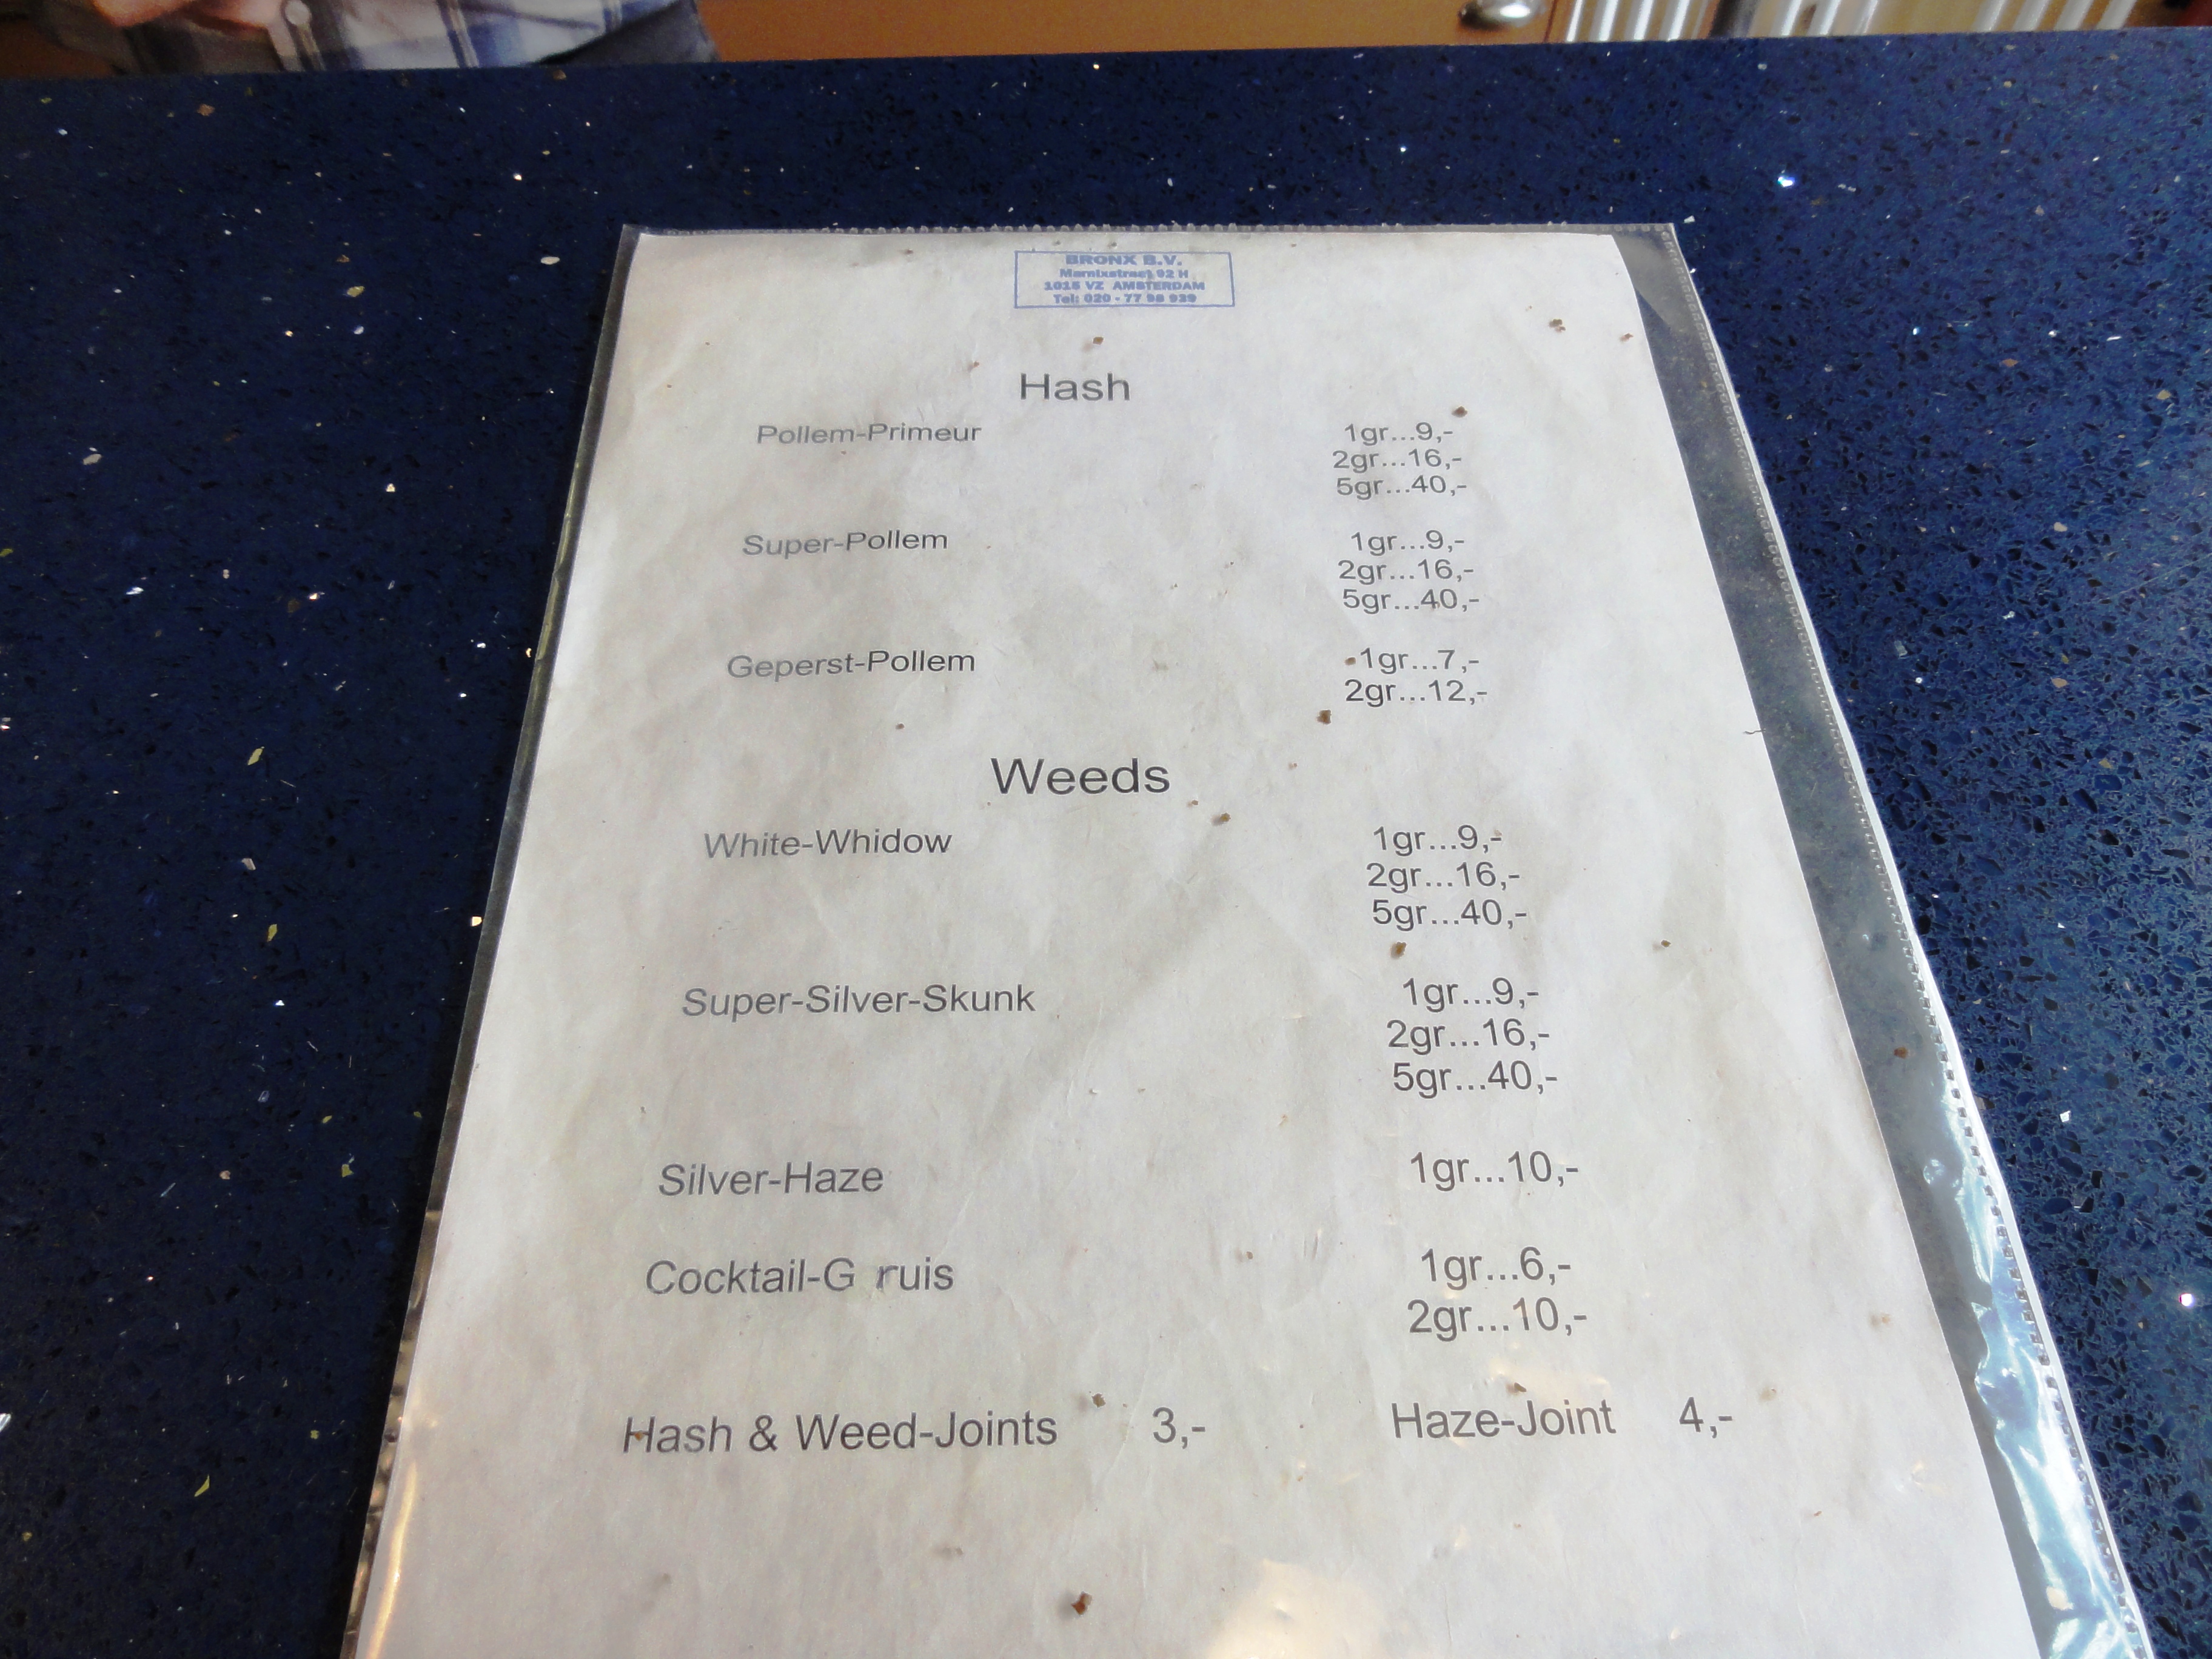 BRONX B.V.
Marnixstraat 92 H
1015 VZ AMSTERDAM
Tel: 020 - 77 98 939
Hash
Pollem-Primeur 1gr...9,-
2gr...16,-
5gr...40,-
Super-Pollem 1gr...9,-
2gr...16,-
5gr...40,-
Geperst-Pollem 1gr...7,-
2gr...12,-
Weeds
White-Whidow 1gr...9,-
2gr...16,-
5gr...40,-
Super-Silver-Skunk 1gr...9,-
2gr...16,-
5gr...40,-
Silver-Haze 1gr...10,-
Cocktail-G ruis 1gr...6,-
2gr...10,-
Hash & Weed-Joints 3,- Haze-Joint 4,-